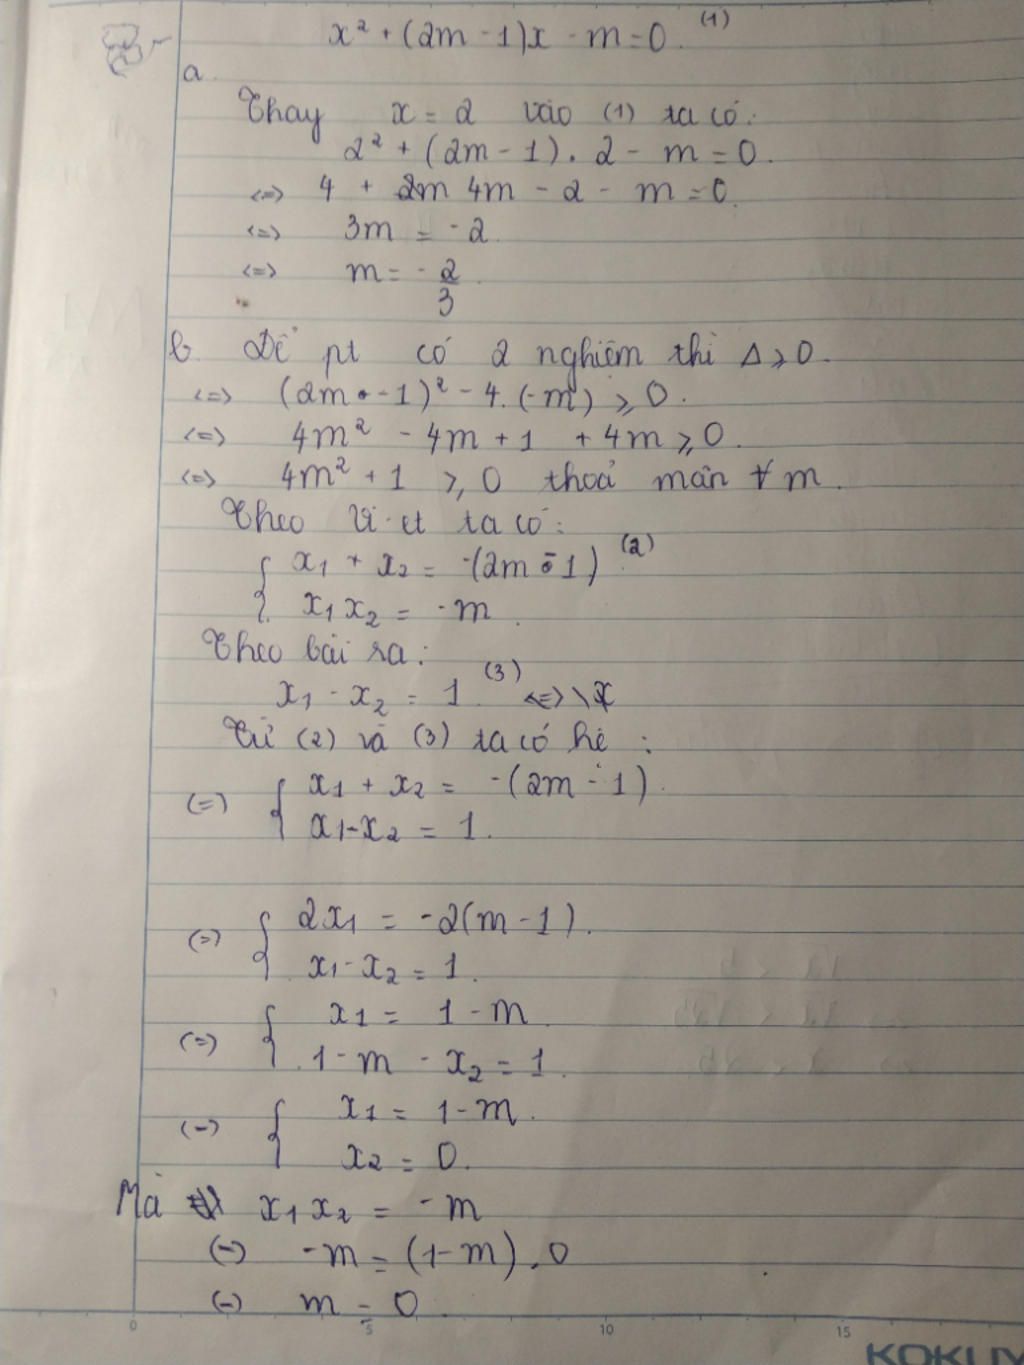 x² + (2m - 1)x - m = 0. (1)
a.
Thay x = 2 vào (1) ta có:
2² + (2m - 1). 2 - m = 0.
<=> 4 + 4m - 2 - m = 0.
<=> 3m = -2.
<=> m = -2/3.
b. Để pt có 2 nghiệm thì Δ ⩾ 0.
<=> (2m - 1)² - 4. (-m) ⩾ 0.
<=> 4m² - 4m + 1 + 4m ⩾ 0.
<=> 4m² + 1 ⩾ 0 thoả mãn ∀ m.
Theo Vi-et ta có:
{ x₁ + x₂ = -(2m - 1) (2)
x₁ x₂ = -m.
Theo bài ra:
x₁ - x₂ = 1. (3) <=>
Từ (2) và (3) ta có hệ:
(=) { x₁ + x₂ = -(2m - 1).
x₁ - x₂ = 1.
(=) { 2x₁ = -2(m - 1).
x₁ - x₂ = 1.
(=) { x₁ = 1 - m.
1 - m - x₂ = 1.
(=) { x₁ = 1 - m.
x₂ = 0.
Mà x₁ x₂ = -m
(=) -m = (1 - m). 0
(=) m = 0.
0 5 10 15
KOKUY